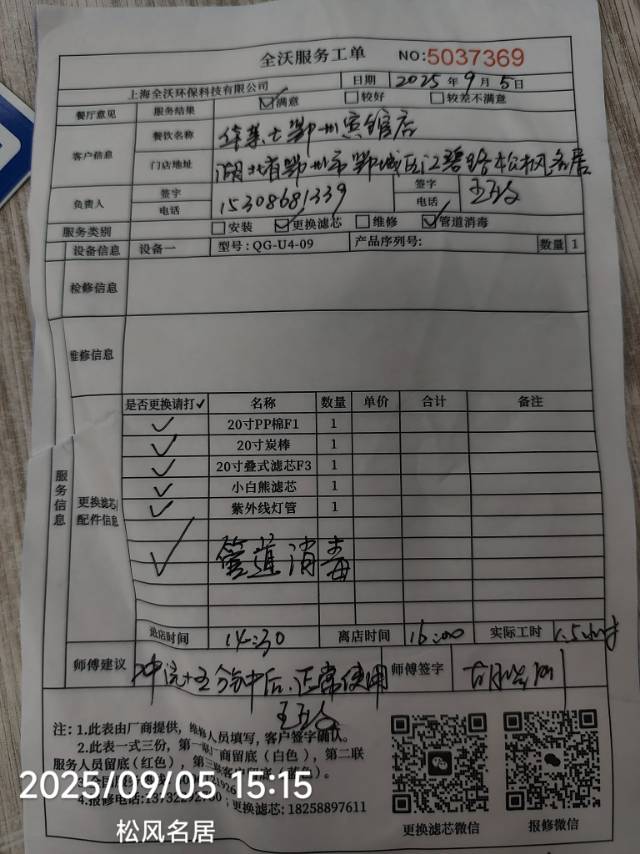 全沃服务工单 NO:5037369
上海全沃环保科技有限公司 日期 2025年9月5日
餐厅意见 服务结果 ☑满意 □较好 □较差不满意
客户信息 餐饮名称 华莱士鄂州宾馆店
门店地址 湖北省鄂州市鄂城区江碧路松风名居
负责人 签字 签字
电话 15308681339 电话
服务类别 □安装 ☑更换滤芯 □维修 ☑管道消毒
设备信息 设备一 型号:QG-U4-09 产品序列号: 数量 1
检修信息
维修信息
服务信息
更换滤芯/配件信息
是否更换请打✓ 名称 数量 单价 合计 备注
✓ 20寸PP棉F1 1
✓ 20寸炭棒 1
✓ 20寸叠式滤芯F3 1
✓ 小白熊滤芯 1
✓ 紫外线灯管 1
✓ 管道消毒
进店时间 14:30 离店时间 16:00 实际工时 1.5小时
师傅建议 冲洗十五分钟后、正常使用 师傅签字
注:1.此表由厂商提供,维修人员填写,客户签字确认。
2.此表一式三份,第一联厂商留底(白色),第二联
服务人员留底(红色),第三联客户留底(蓝色)。
4.报修电话: ;更换滤芯:18258897611
更换滤芯微信 报修微信
2025/09/05 15:15
松风名居